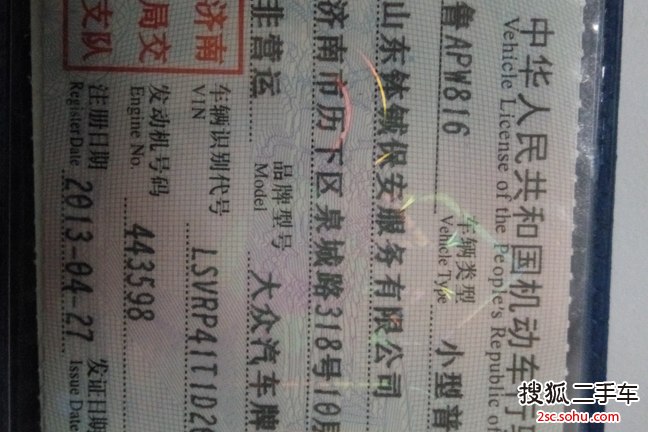 中华人民共和国机动车行
Vehicle License of the People's Republic of
鲁APW816
车辆类型
Vehicle Type
小型普
山东铁城保安服务有限公司
济南市历下区泉城路318号10层
非营运
品牌型号
Model
大众汽车牌
车辆识别代号
VIN
LSVRP41T1D2
发动机号码
Engine No.
443598
注册日期
Register Date
2013-04-27
发证日期
Issue Date
济南
局交
支队
搜狐二手车
2sc.sohu.com